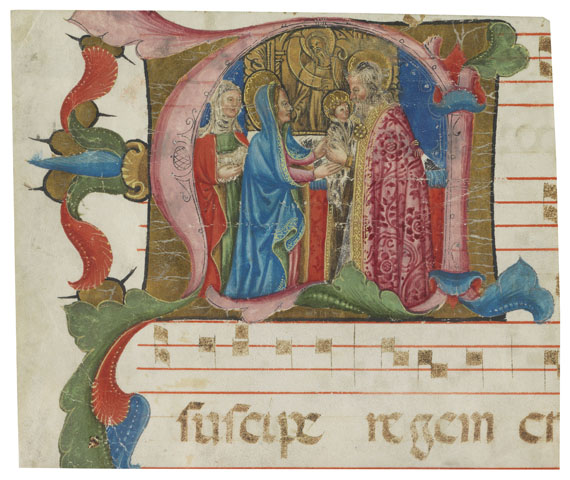 suscipe regem cr